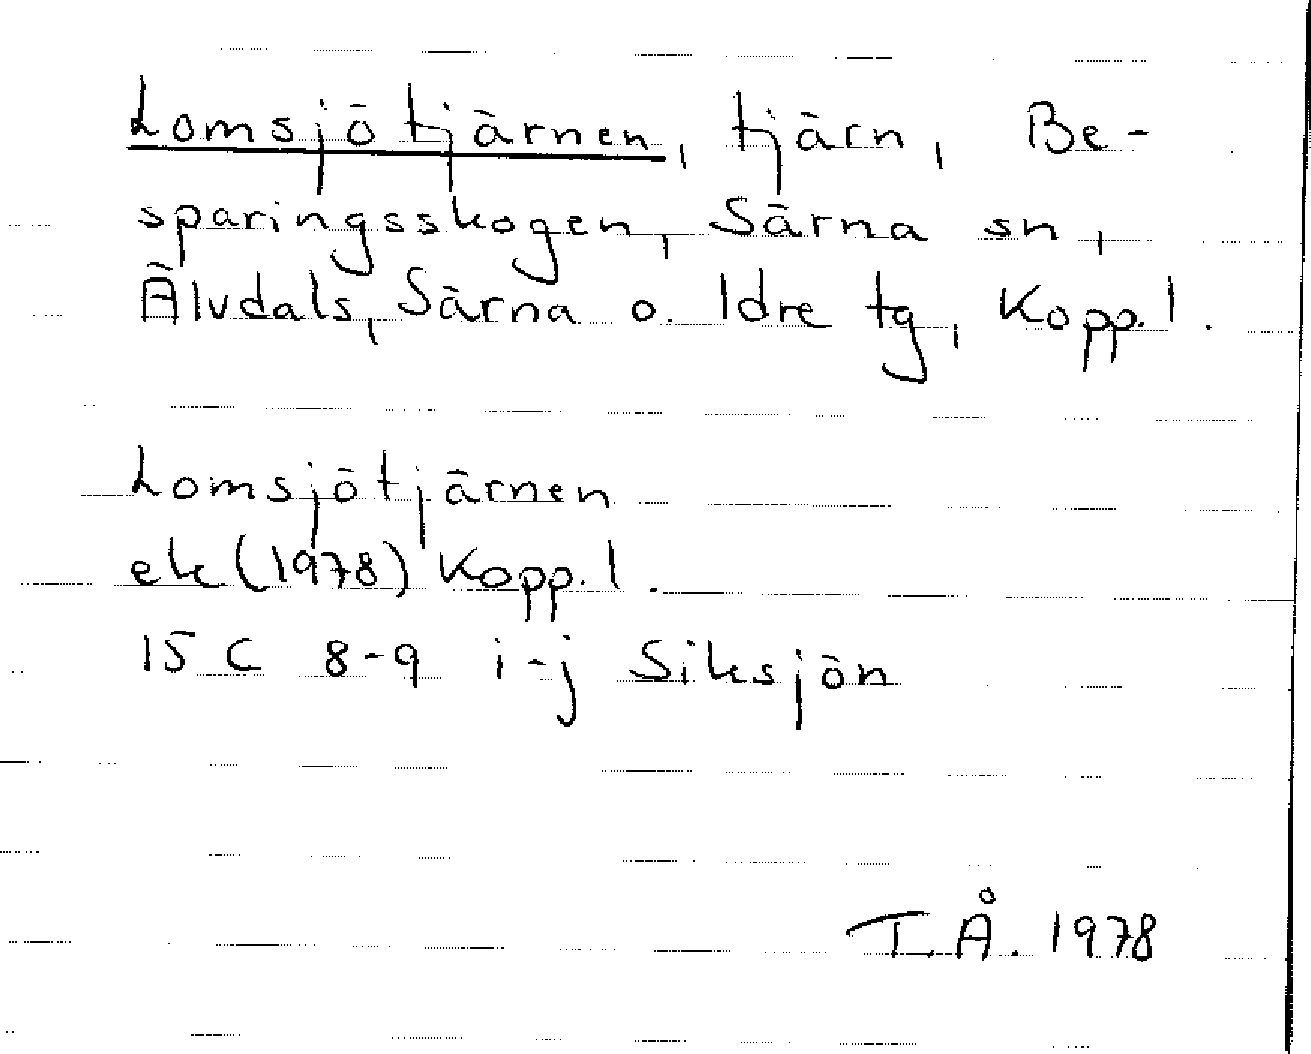 Lomsjötjärnen, tjärn, Be-
sparingsskogen, Särna sn,
Älvdals, Särna o. Idre tg, Kopp. l.
Lomsjötjärnen
ek (1978) Kopp. l.
15 C 8-9 i-j Siksjön
T. Å. 1978